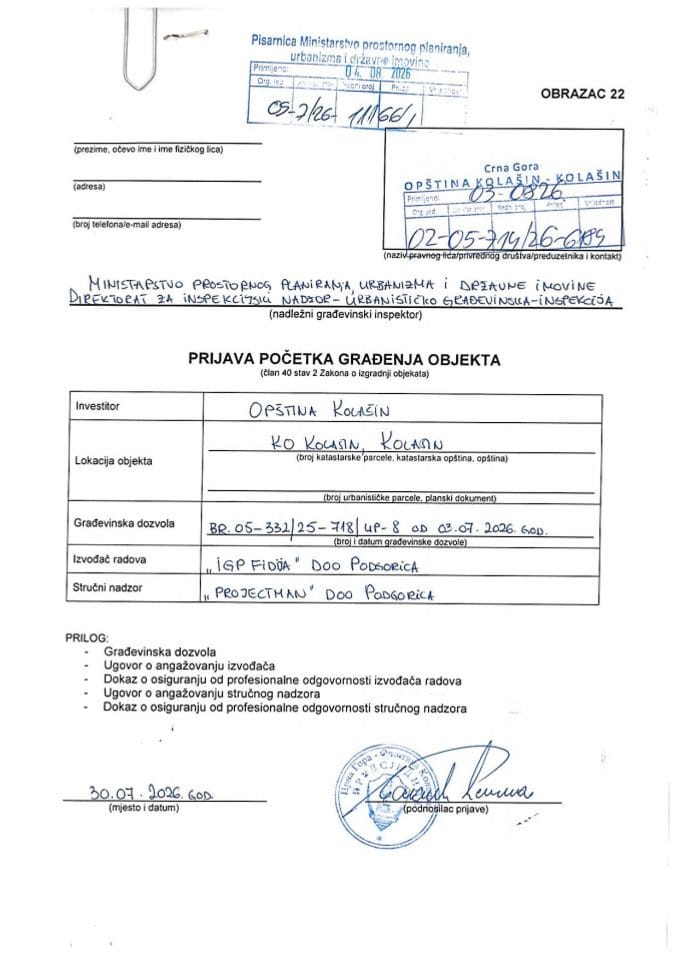 Pisarnica Ministarstvo prostornog planiranja,
urbanizma i državne imovine
Primljeno: 04. 08. 2026
Org. jed. Prilog Vrijednost
05-7/26- 11166/1
OBRAZAC 22
(prezime, očevo ime i ime fizičkog lica)
(adresa)
(broj telefona/e-mail adresa)
Crna Gora
OPŠTINA KOLAŠIN - KOLAŠIN
Primljeno: 03-0826
Org. jed. Vrijednost
02-05-714/26-6189
(naziv pravnog lica/privrednog društva/preduzetnika i kontakt)
MINISTARSTVO PROSTORNOG PLANIRANJA, URBANIZMA I DRŽAVNE IMOVINE
DIREKTORAT ZA INSPEKCIJSKI NADZOR - URBANISTIČKO GRAĐEVINSKA-INSPEKCIJA
(nadležni građevinski inspektor)
PRIJAVA POČETKA GRAĐENJA OBJEKTA
(član 40 stav 2 Zakona o izgradnji objekata)
Investitor
OPŠTINA KOLAŠIN
Lokacija objekta
KO KOLAŠIN, KOLAŠIN
(broj katastarske parcele, katastarska opština, opština)
(broj urbanističke parcele, planski dokument)
Građevinska dozvola
BR. 05-332/25-718/UP-8 OD 03.07.2026. GOD.
(broj i datum građevinske dozvole)
Izvođač radova
„IGP FIDIJA" DOO PODGORICA
Stručni nadzor
„PROJECTMAN" DOO PODGORICA
PRILOG:
- Građevinska dozvola
- Ugovor o angažovanju izvođača
- Dokaz o osiguranju od profesionalne odgovornosti izvođača radova
- Ugovor o angažovanju stručnog nadzora
- Dokaz o osiguranju od profesionalne odgovornosti stručnog nadzora
30.07.2026. GOD.
(mjesto i datum)
(podnosilac prijave)